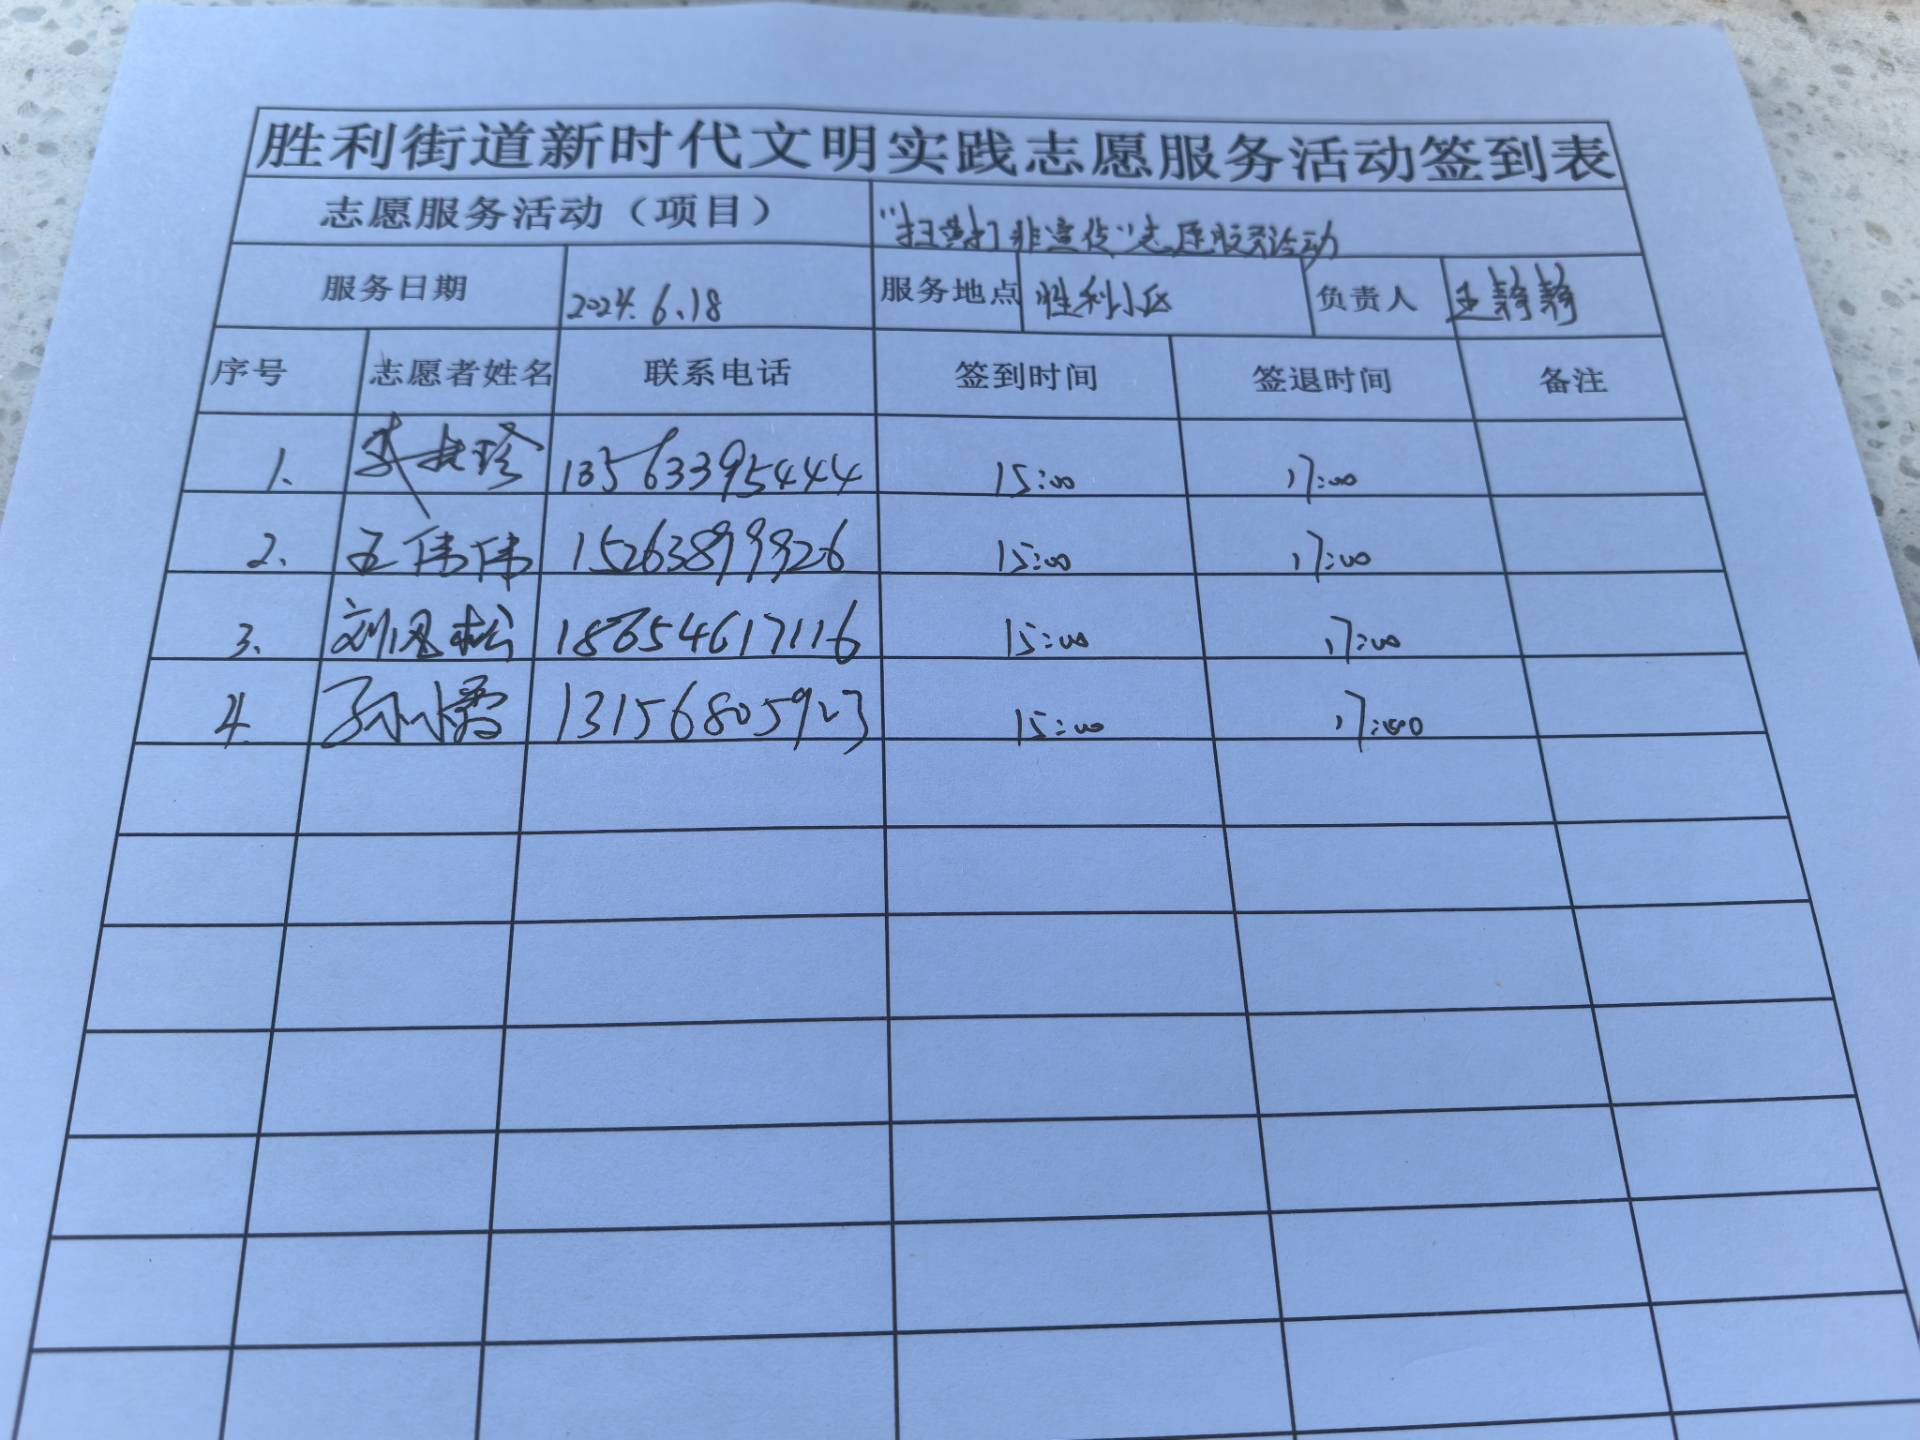 胜利街道新时代文明实践志愿服务活动签到表
志愿服务活动（项目） "扫黄打非宣传"志愿服务活动
服务日期 2024.6.18 服务地点 胜利小区 负责人 王静静
序号 志愿者姓名 联系电话 签到时间 签退时间 备注
1. 13563395444 15:00 17:00
2. 王伟伟 15263899926 15:00 17:00
3. 刘恩松 18654617116 15:00 17:00
4. 孙小雪 13156805923 15:00 17:00